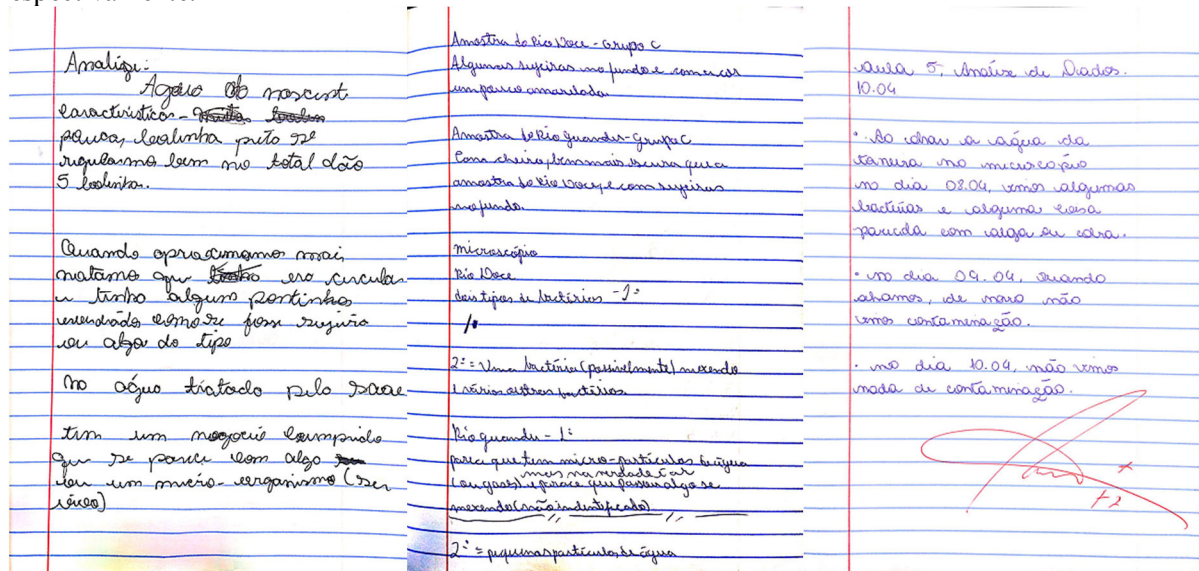 Analize:
Agua da nascent
caracteristica -
pouca, boolinha preto se
no total dão
5 boolinha.
Quando aproximamos mais
notamos que era circular
e tinha algum pontinhos
como se fosse sujeira
ou alga do tipo
no água tratada pelo Saae
tem um negocio comprido
que se parece com algo
ou um micro-organismo (ser
vivo)
Amostra do Rio Doce - Grupo C
Algumas sujeiras no fundo e com a cor
um pouco amarelada
Amostra do Rio guandu - Grupo C
Com cheiro, bem mais escura que a
amostra do Rio Doce, e com sujeiras
no fundo.
microscópio
Rio Doce
dois tipos de bactérias - 1º
2º = Uma bactéria (possivelmente) mexendo
e várias outras bactérias
Rio guandu - 1º
parece que tem micro-partículas de água
mas na verdade é ar
(ou gases) e parece que passou algo se
mexendo (não indentificado)
2º = pequenas partículas de água
aula 5, Análise de Dados.
10.04
• Ao olhar a água da
torneira no microscópio
no dia 08.04, vimos algumas
bactérias e alguma coisa
parecida com alga ou cobra.
• no dia 09.04, quando
olhamos, de novo não
vimos contaminação.
• no dia 10.04, não vimos
nada de contaminação.